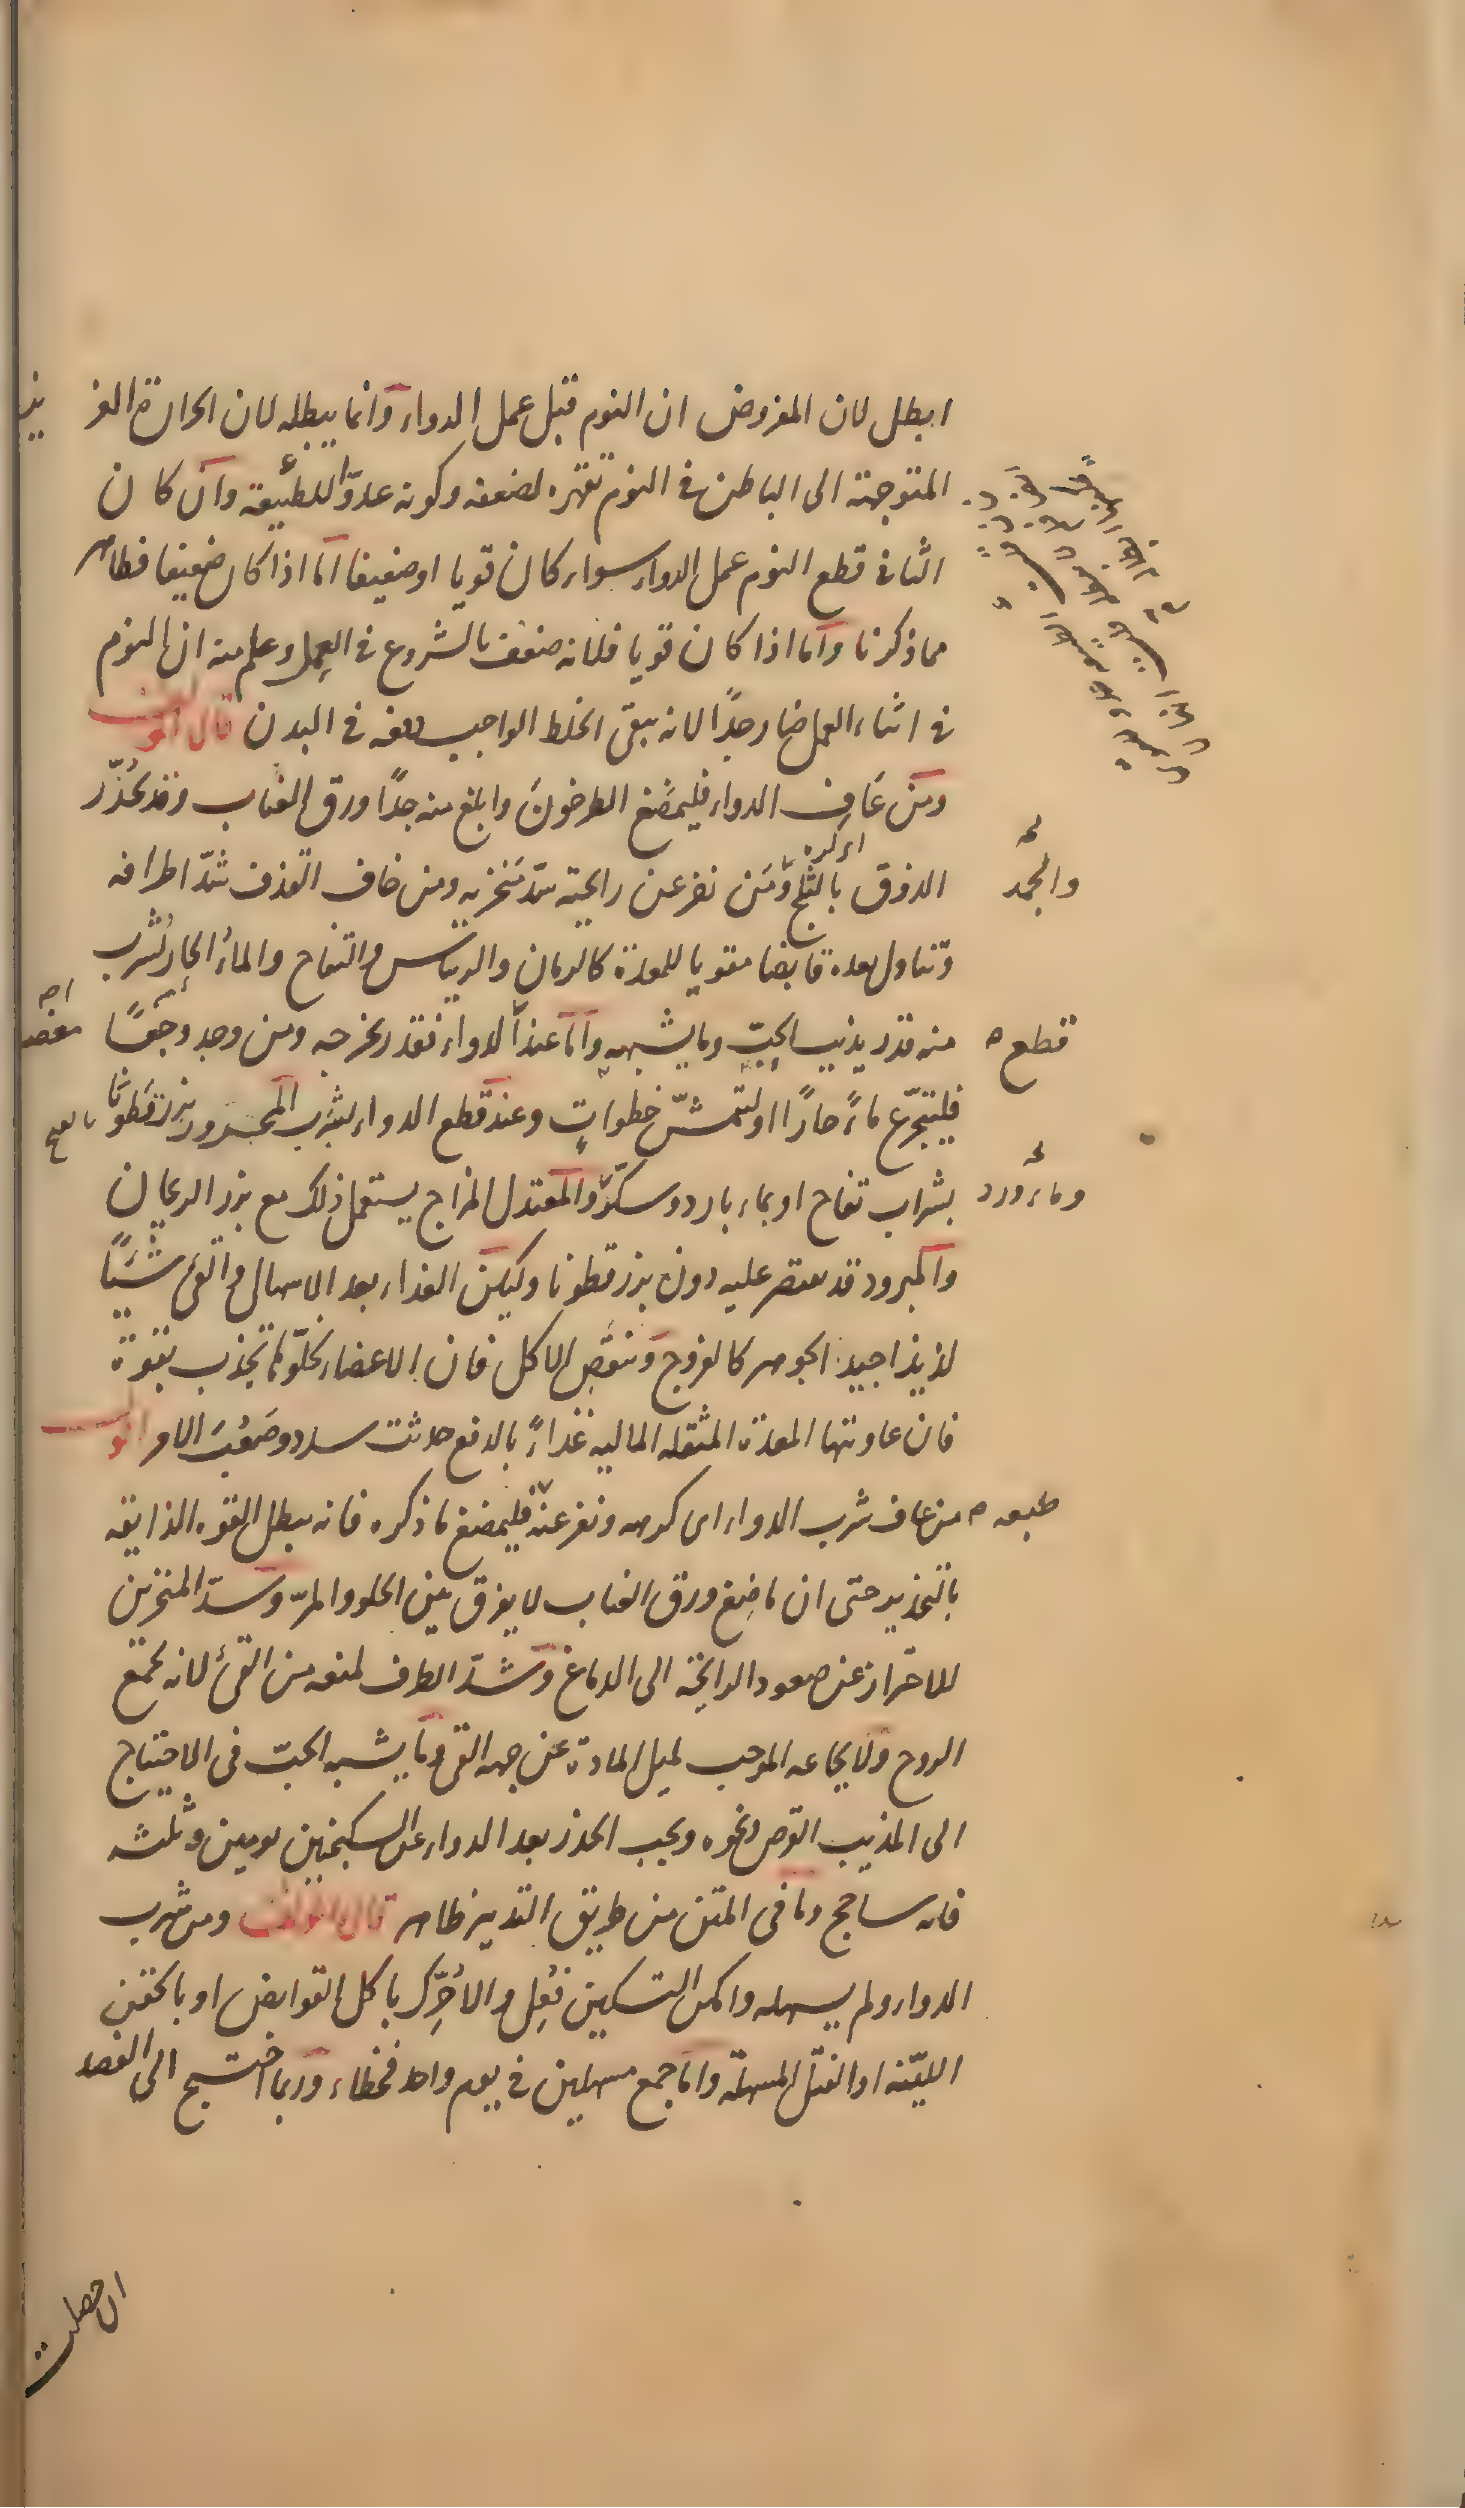 ابطل لان المفروض ان النوم قبل عمل الدواء وانما يبطله لان الحرارة الغر
المتوجهة الى الباطن فى النوم تقهره لضعفه وكونه عدوّا للطبيعة وان كان
الثانى قطع النوم عمل الدواء سواء كان قويا او ضعيفا اما اذا كان ضعيفا فظاهر
مما ذكرنا واما اذا كان قويا فلانه ضعف بالشروع فى العمل وعلم منه ان النوم
فى اثناء العمل ضار جدًا لانه يبقى الخلط الواجب دفعه فى البدن قال المولف
ومن عَاف الدواء فليمضَغ الطرخونَ وابلغ منه جدًا ورق العناب وقد يُخدّر
الذوق بالثلج ومَن نفر عن رايحته سدّ مَنخريه ومن خاف القذف شدّ اطرافه
والجمد
اى كره
وتناول بعده قابضا مقويا للمعدة كالرمان والريباس والتفاح والماءُ الحار يُشرب
منه قدر يذيب الحبّ وما يشبهه واما عند الدواء فقدر يخرجه ومن وجد وجعًا
قطع
مغص
فليتجرّع ماءً حارًا او ليتمشّ خطواتٍ وعند قطع الدواء ليشرب المحرور بزرقطونا
بشراب تفاح او بماء بارد وسكّر والمعتدل المزاج يستعمل ذلك مع بزر الريحان
وماء ورد
والمبرود قد يقتصر عليه دون بزرقطونا وليكن الغذاء بعد الاسهال والقى شيئًا
لذيذا جيد الجوهر كالفروج وينقص الاكل فان الاعضاء لخلّوها تجذب بقوة
فان عاونتها المعدة المثقله الماليه غذاءً بالدفع حدثت سدد وصَعُبَ الامر اقول
من عاف شرب الدواء اى كرهه ونفر عنه فليمضغ ما ذكره فانه يبطل القوه الذايقه
طبعه
بالتخدير حتى ان ماضِغ ورق العناب لا يفرق بين الحلو والمرّ وسدّ المنخرين
للاحتراز عن صعود الرايحة الى الدماغ وشدّ الطرف لمنعه من القئ لانه يجمع
الروح ولايجاعه الموجب لميل المادة عن جهه القى وما يشبه الحبّ فى الاحتياج
الى المذيب القرص ونحوه ويجب الحذر بعد الدواء عن السكنجبين يومين وثلثه
فانه ساحج وما فى المتن من طريق التدبير ظاهر قال المولف ومن شرب
الدواء ولم يسهله وامكن التسكين فُعِل والا حُرِّك باكل القوابض او بالحقن
الليّنه او الفتل المسهلة واما جمع مسهلين فى يوم واحد فخطاء وربما احتيج الى الفصد
ان حصلت